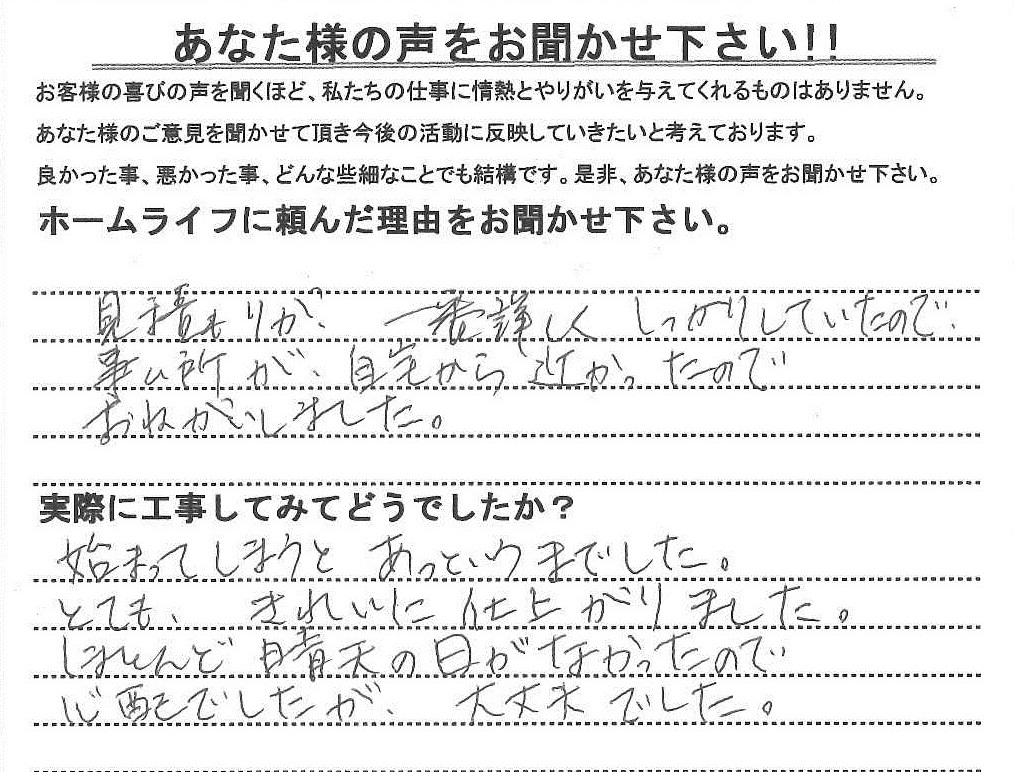 あなた様の声をお聞かせ下さい!!
お客様の喜びの声を聞くほど、私たちの仕事に情熱とやりがいを与えてくれるものはありません。
あなた様のご意見を聞かせて頂き今後の活動に反映していきたいと考えております。
良かった事、悪かった事、どんな些細なことでも結構です。是非、あなた様の声をお聞かせ下さい。
ホームライフに頼んだ理由をお聞かせ下さい。
見積もりが、一番詳しく しっかりしていたので、
事ム所が、自宅から近かったので
おねがいしました。
実際に工事してみてどうでしたか？
始まってしまうと あっというまでした。
とても、きれいに仕上がりました。
ほとんど晴天の日がなかったので
心配でしたが、大丈夫でした。